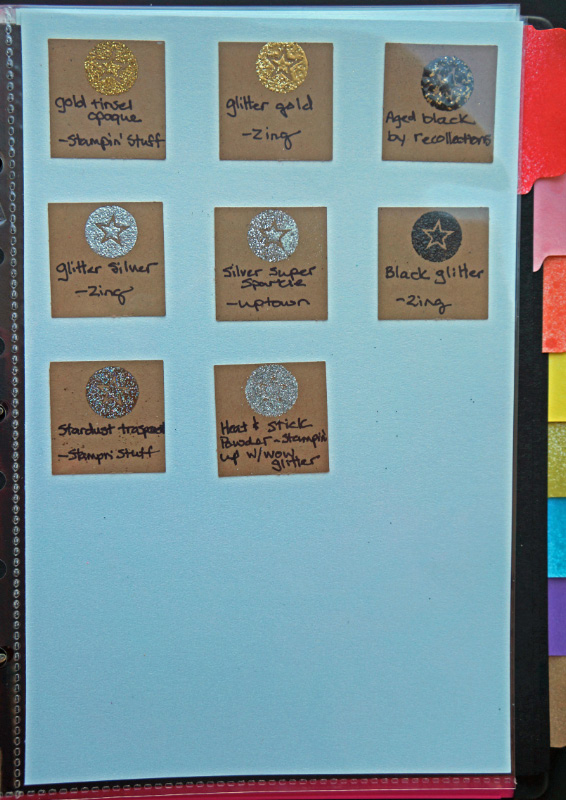 gold tinsel
opaque
-Stampin' Stuff
glitter gold
-Zing
Aged black
by recollections
glitter Silver
-Zing
Silver Super
Sparkle
-uptown
Black glitter
-Zing
Stardust
-Stampn' Stuff
Heat & Stick
Powder-Stampin'
up w/wow
glitter